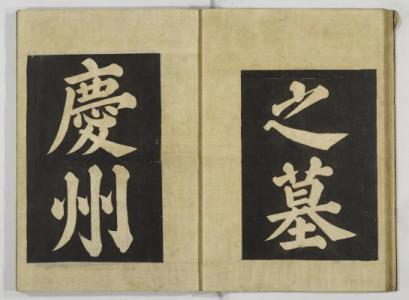 之墓
慶州